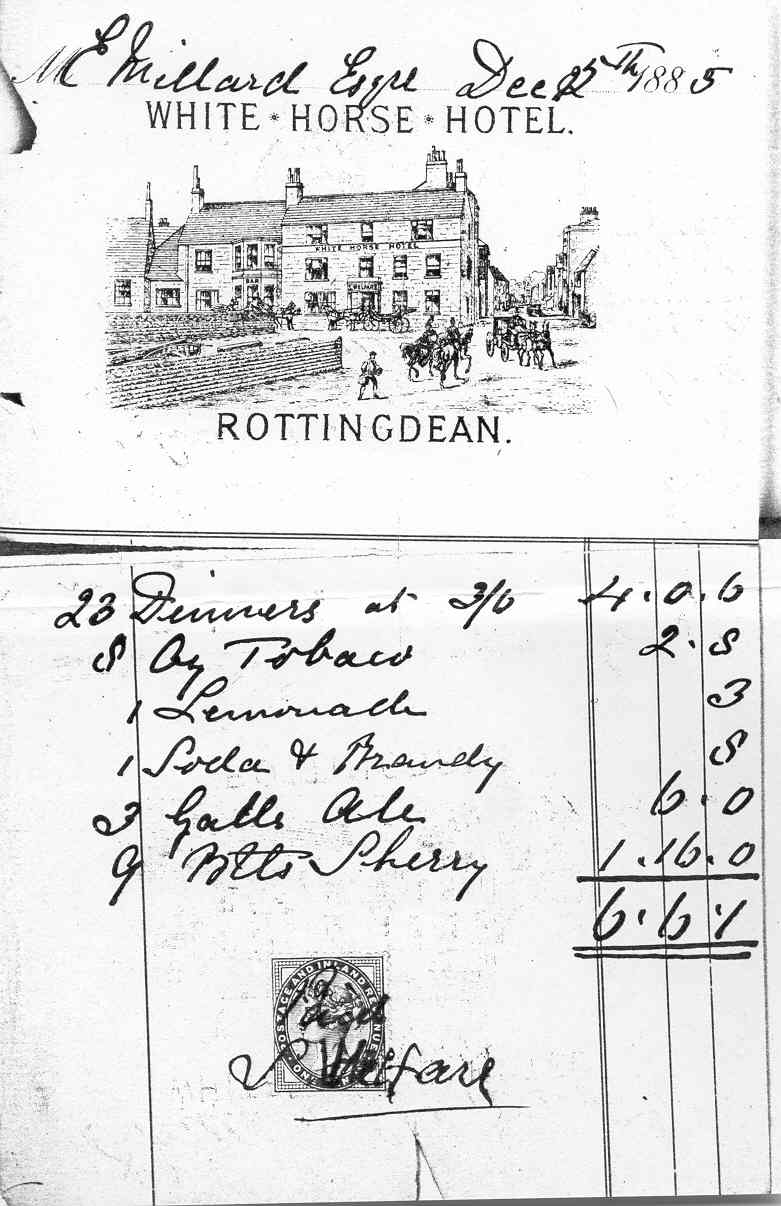 E Millard Esqre Dec 1885
WHITE * HORSE * HOTEL.
WHITE HORSE HOTEL
BAR
WELFARE
ROTTINGDEAN.
23 Dinners at 3/6 4.0.6
8 Oz Tobaco 2.8
1 Lemonade 3
1 Soda & Brandy 8
3 Galls Ale 6.0
9 Botts Sherry 1.16.0
6.6.1
POSTAGE AND INLAND REVENUE
ONE PENNY
Paid
S Welfare